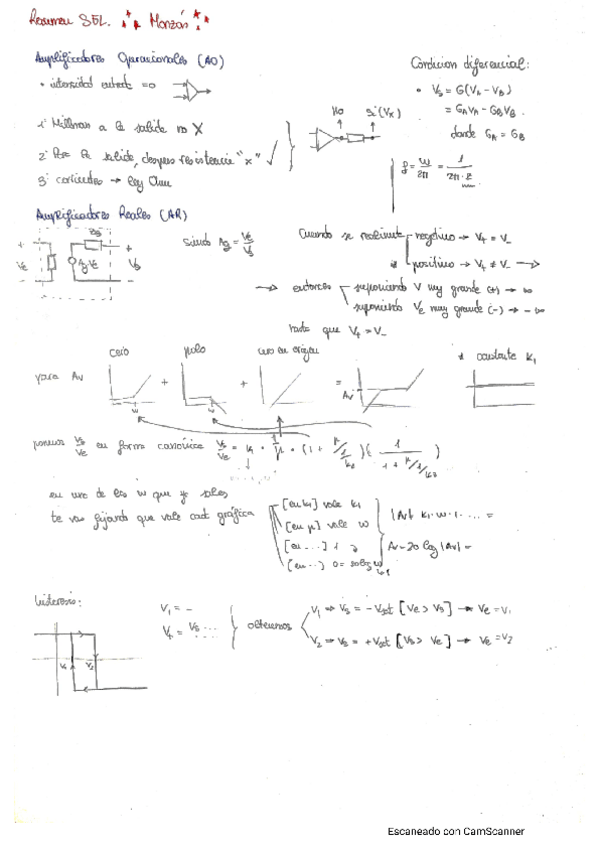 Resumen SEL. Monzón
Amplificadores Operacionales (AO)
• intensidad entrada =0
1º Millman a la salida no X
2º Por la salida, despues resistencia "x" ✓
3º corrientes → ley Ohm
NO
Si (Vx)
Condicion diferencial:
• Vs = G(VA - VB)
= GAVA - GBVB.
donde GA = GB
f = w/2π = 1/2π·
Amplificadores Reales (AR)
+ +
Ve Ag·Ve Vs
- -
siendo Ag = Vs/Ve
Cuando se realimenta negativo → V+ = V-
positivo → V+ ≠ V- →
→ entonces suponiendo V muy grande (+) → ∞
suponiendo Ve muy grande (-) → -∞
hasta que V+ = V-
para Av cero + polo + uno en origen = Av * constante K1
w w
ponemos Vs/Ve en forma canónica Vs/Ve = K1 ·
en uno de los w que ya sabes
te vas fijando que vale cada gráfica
[en K1] vale K1
[en μ] vale w
[en ...] 1
[en ...]
|Av| K1·w·1· ... =
Av = 20 log |Av| =
histeresis:
V1 V2
V1 = -
V+ = Vs ....
obtenemos
V1 → Vs = -Vsat [Ve > Vs] → Ve = V1
V2 → Vs = +Vsat [Vs > Ve] → Ve = V2
Escaneado con CamScanner